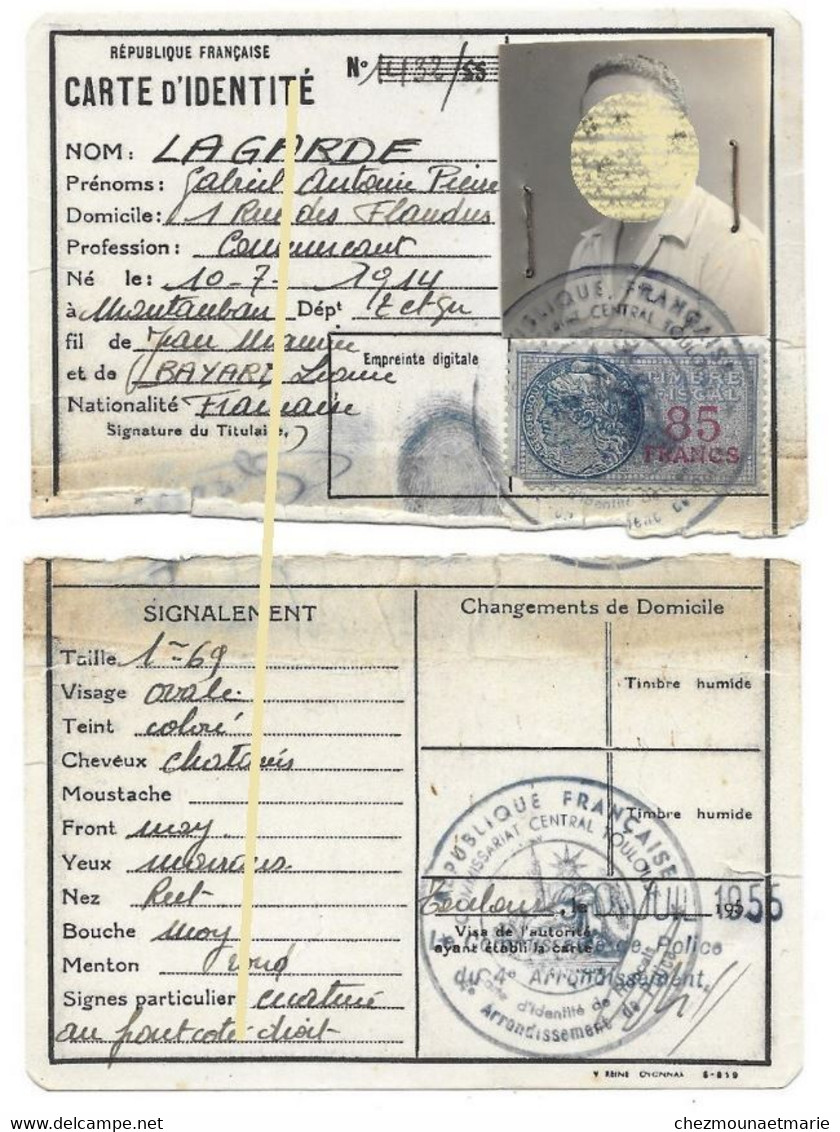 RÉPUBLIQUE FRANÇAISE
CARTE D'IDENTITÉ
N° 1432/55
NOM: LAGARDE
Prénoms: Gabriel Antonin Pierre
Domicile: 1 Rue des Flandres
Profession: Commerçant
Né le: 10-7-1914
à Montauban Dépt T et Gne
fil de Jean Maurice
et de BAYARD
Nationalité Française
Signature du Titulaire,
Empreinte digitale
RÉPUBLIQUE FRANÇAISE
COMMISSARIAT CENTRAL TOULOUSE
TIMBRE
FISCAL
85
FRANCS
SIGNALEMENT
Taille 1m69
Visage ovale
Teint coloré
Cheveux chatains
Moustache
Front moy
Yeux marrons
Nez Rect
Bouche moy
Menton rond
Signes particulier cicatrice
au front coté droit
Changements de Domicile
Timbre humide
Timbre humide
RÉPUBLIQUE FRANÇAISE
COMMISSARIAT CENTRAL TOULOUSE
Toulouse, le JUIL 1955
Visa de l'autorité
ayant établi la carte
Le Commissaire de Police
du 4e Arrondissement,
Carte d'identité de Français
Arrondissement de Police
V REINE OYONNAX 5-819
chezmounaetmarie